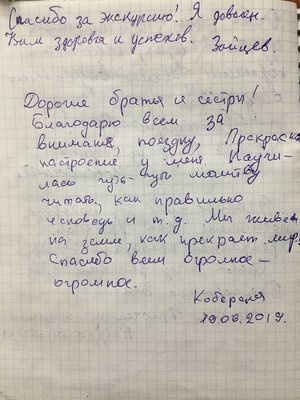 Спасибо за экскурсию! Я доволен.
Вам здоровья и успехов. Зайцев.
Дорогие братья и сёстры!
Благодарю всем за
внимание, поездку, Прекрасно
настроение у меня. Научи-
лась чуть-чуть молитву
читать, как правильно
исповедь и т.д. Мы живем
на земле, как прекрасен мир.
Спасибо всем огромное-
огромное.
19.06.2019.